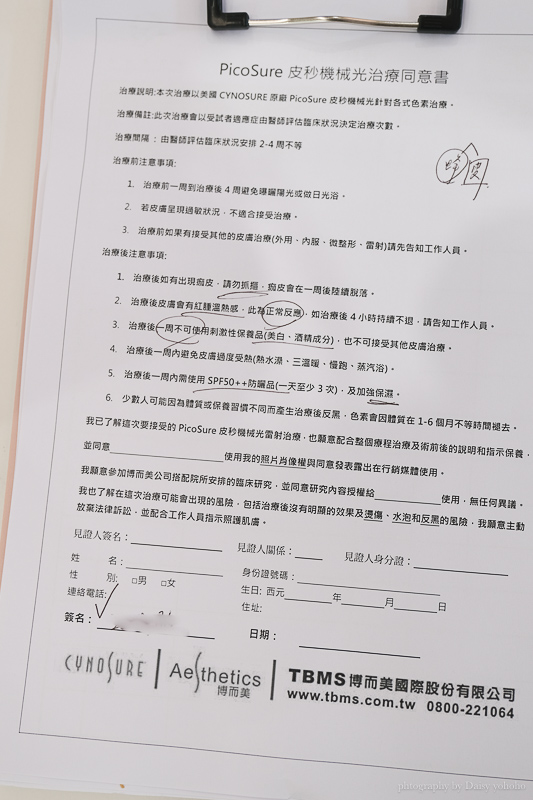 PicoSure 皮秒機械光治療同意書
治療說明:本次治療以美國 CYNOSURE 原廠 PicoSure 皮秒機械光針對各式色素治療。
治療備註:此次治療會以受試者適應症由醫師評估臨床狀況決定治療次數。
治療間隔 : 由醫師評估臨床狀況安排 2-4 周不等
治療前注意事項:
1. 治療前一周到治療後 4 周避免曝曬陽光或做日光浴。
2. 若皮膚呈現過敏狀況，不適合接受治療。
3. 治療前如果有接受其他的皮膚治療(外用、內服、微整形、雷射)請先告知工作人員。
治療後注意事項:
1. 治療後如有出現痂皮，請勿抓摳，痂皮會在一周後陸續脫落。
2. 治療後皮膚會有紅腫溫熱感，此為正常反應，如治療後 4 小時持續不退，請告知工作人員。
3. 治療後一周不可使用刺激性保養品(美白、酒精成分)，也不可接受其他皮膚治療。
4. 治療後一周內避免皮膚過度受熱(熱水澡、三溫暖、慢跑、蒸汽浴)。
5. 治療後一周內需使用 SPF50++防曬品(一天至少 3 次)，及加強保濕。
6. 少數人可能因為體質或保養習慣不同而產生治療後反黑，色素會因體質在 1-6 個月不等時間褪去。
我已了解這次要接受的 PicoSure 皮秒機械光雷射治療，也願意配合整個療程治療及術前後的說明和指示保養，
並同意使用我的照片肖像權與同意發表露出在行銷媒體使用。
我願意參加博而美公司搭配院所安排的臨床研究，並同意研究內容授權給使用，無任何異議。
我也了解在這次治療可能會出現的風險，包括治療後沒有明顯的效果及燙傷、水泡和反黑的風險，我願意主動
放棄法律訴訟，並配合工作人員指示照護肌膚。
見證人簽名： 見證人關係： 見證人身分證：
姓 名： 身份證號碼：
性 別: □男 □女 生日: 西元 年 月 日
連絡電話: 住址:
簽名： 日期：
CYNOSURE AeSthetics 博而美 TBMS 博而美國際股份有限公司
www.tbms.com.tw 0800-221064